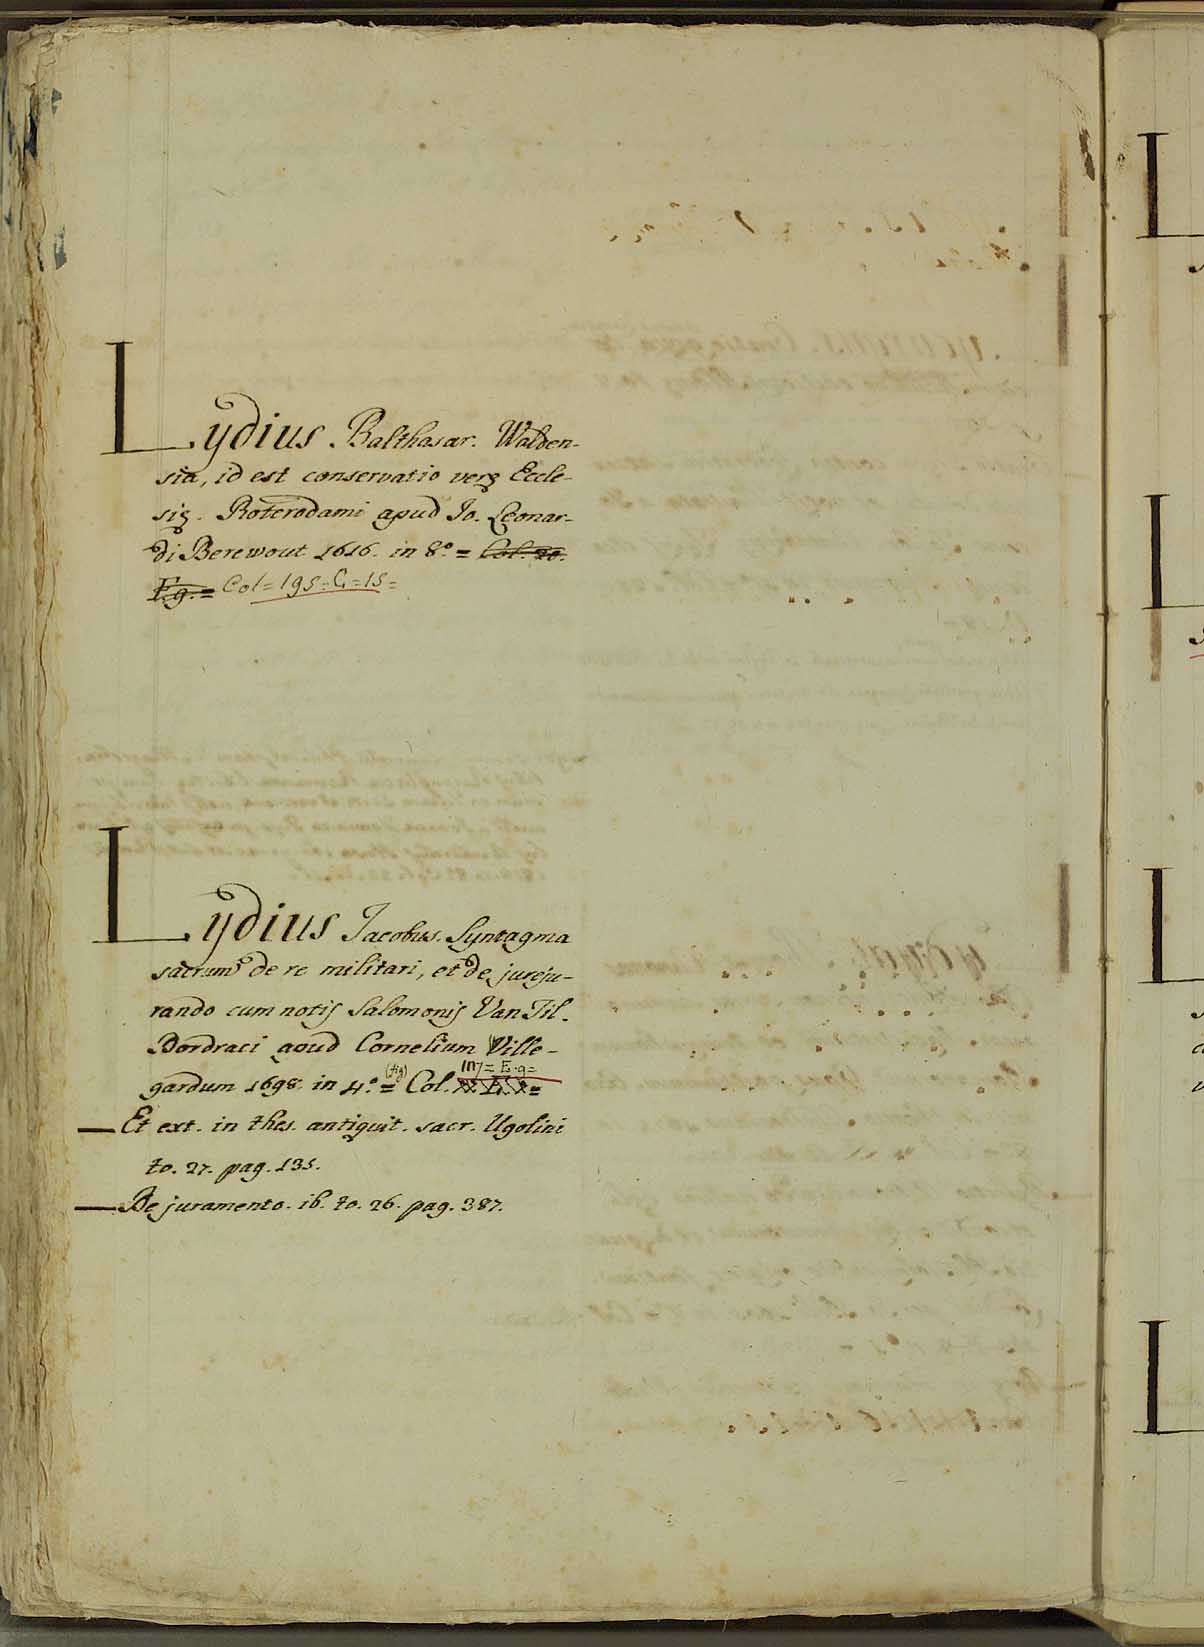 Lydius Balthasar. Walden-
sia, id est conservatio verę Eccle-
się. Roterodami apud Jo. Leonar-
di Berewout 1616. in 8.º = Col. 20.
E.g. = Col = 195 = C = 15 =
Lydius Jacobus. Syntagma
sacrum de re militari, et de jureju-
rando cum notis Salomonis Van Til.
Dordraci apud Cornelium Wille-
117 = E. 9 =
gardum 1698. in 4.º (fig) = Col.
Et ext. in thes. antiquit. sacr. Ugolini
to. 27. pag. 135.
De juramento. ib. to. 26. pag. 387.